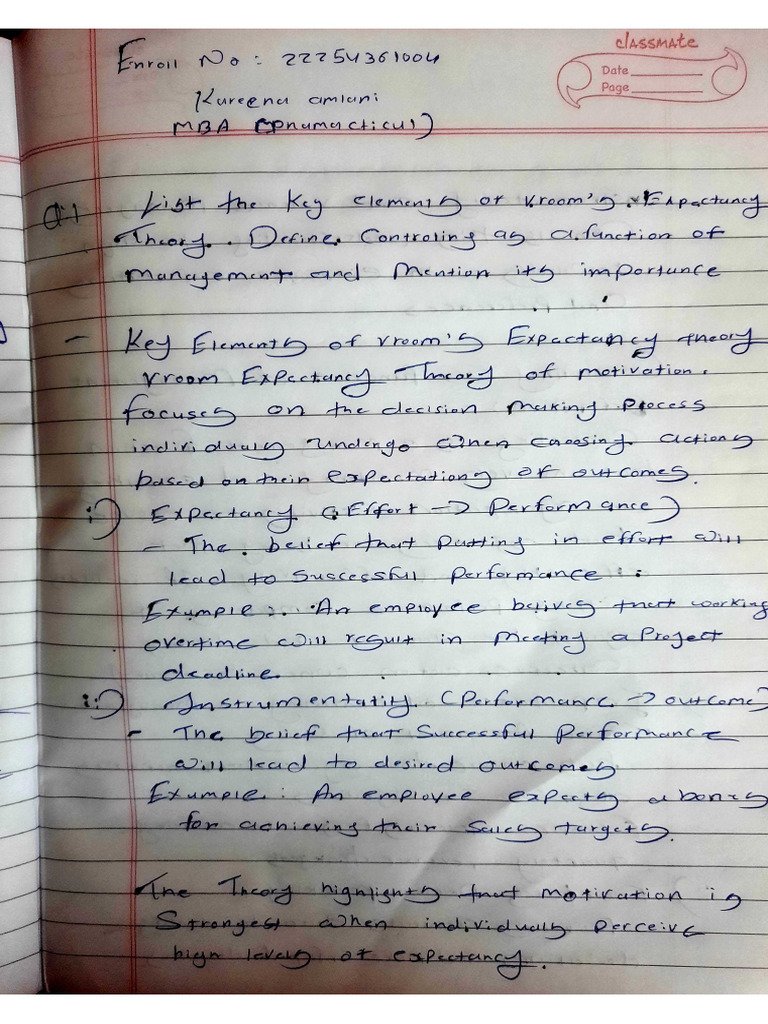 classmate
Date
Page
Enroll No : 22254361004
Kareena amlani
MBA
Q:1 List the Key elements of vroom's Expactancy
Theory. Define Controling as a function of
management and Mention its importance
- Key Elements of vroom's Expactancy theory
vroom Expectancy Theory of motivation.
focuses on the decision making process
individuals undergo when choosing actions
based on their expectations of outcomes.
i:) Expectancy (Effort → Performance)
- The belief that putting in effort will
lead to successful performance :
Example :. An employee belives that working
overtime will result in meeting a project
deadline.
ii:) Instrumentatity (Performance → outcome)
- The belief that Successful Performance
will lead to desired outcomes
Example : An employee expects a bonus
for achieving their sales targets.
The Theory highlights that motivation is
Strongest when individuals perceive
high levels of expectancy.